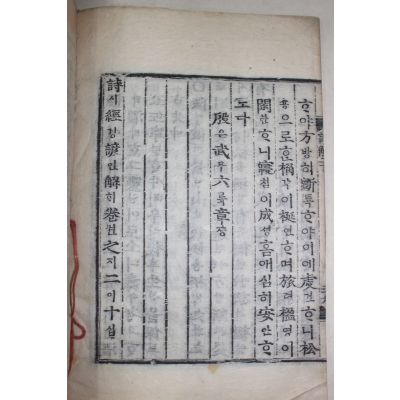 ᄒᆞ야方방히斲탁ᄒᆞ야이에虔건ᄒᆞ니松
숑으로ᄒᆞᆫ桷각이梴연ᄒᆞ며旅려楹영이
閑한ᄒᆞ니寢침이成셩홈애심히安안ᄒᆞ
도다
殷은武무六륙章쟝
詩시經경諺언解ᄒᆡ卷권之지二이十십